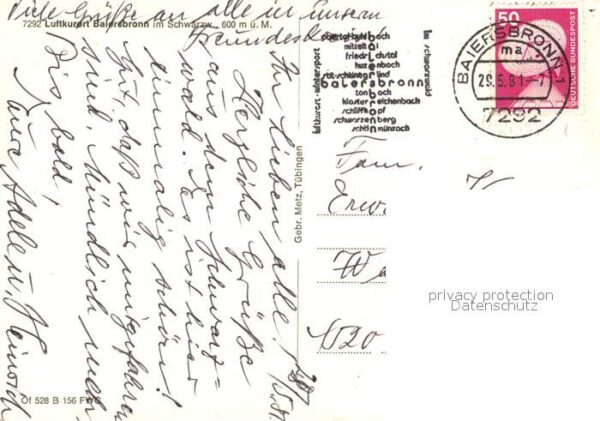 Viele Grüße an alle in unserm
Freundeskreis
7292 Luftkurort Baiersbronn im Schwarzw., 600 m ü. M.
Ihr Lieben alle!
Herzliche Grüße
aus dem Schwarz=
wald. Es ist hier
einmalig schön!
Gut, daß wir mitgefahren
sind. Mündlich mehr.
Bis bald,
Eure Adele u. Heinrich
Of 528 B 156 FWG
Gebr. Metz, Tübingen
luftkurort · wintersport
obertal · buhlbach
mitteltal
friedrichstal
huzenbach
röt · schönegründ
baiersbronn
tonbach
klosterreichenbach
schliffkopf
schwarzenberg
schönmünzach
im schwarzwald
BAIERSBRONN 1
ma
29.5.81 -7
7292
50
DEUTSCHE BUNDESPOST
Fam.
Erw
Wa
privacy protection
Datenschutz